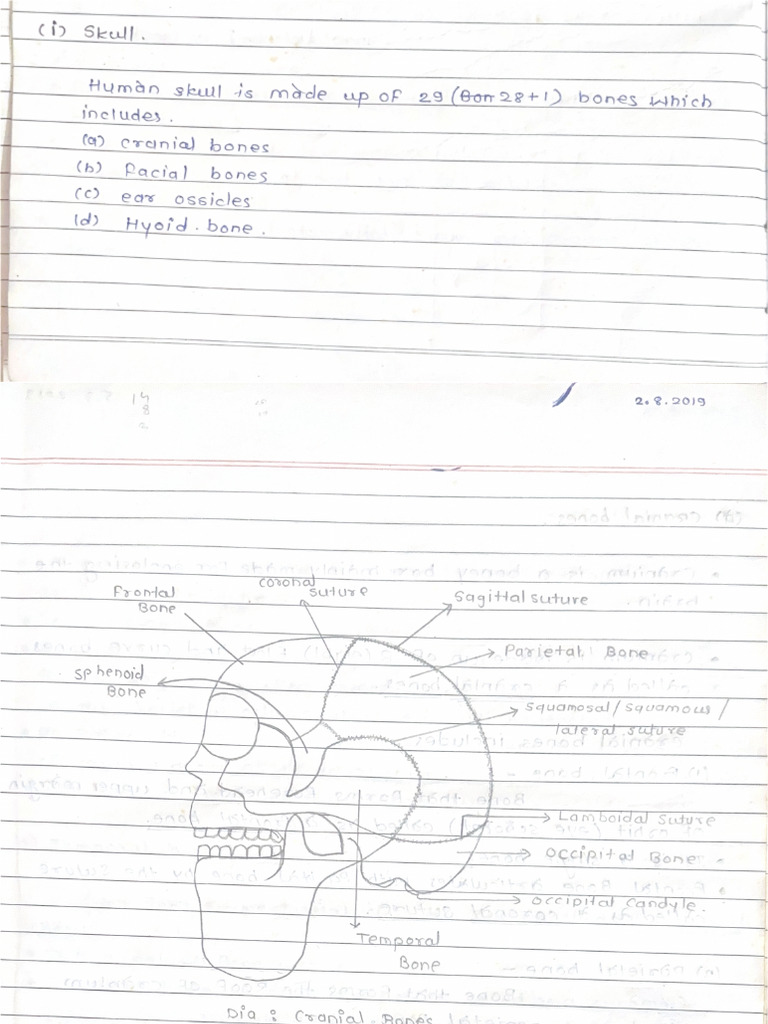 (i) Skull.
Human skull is made up of 29 (28+1) bones which
includes.
(a) cranial bones
(b) facial bones
(c) ear ossicles
(d) Hyoid bone.
14
8
2
2.8.2019
frontal
Bone
coronal
suture
Sagittal suture
Parietal Bone
Sphenoid
Bone
Squamosal/squamous/
lateral suture
Lamboidal Suture
Occipital Bone
Occipital Candyle.
Temporal
Bone
Dia : Cranial Bones